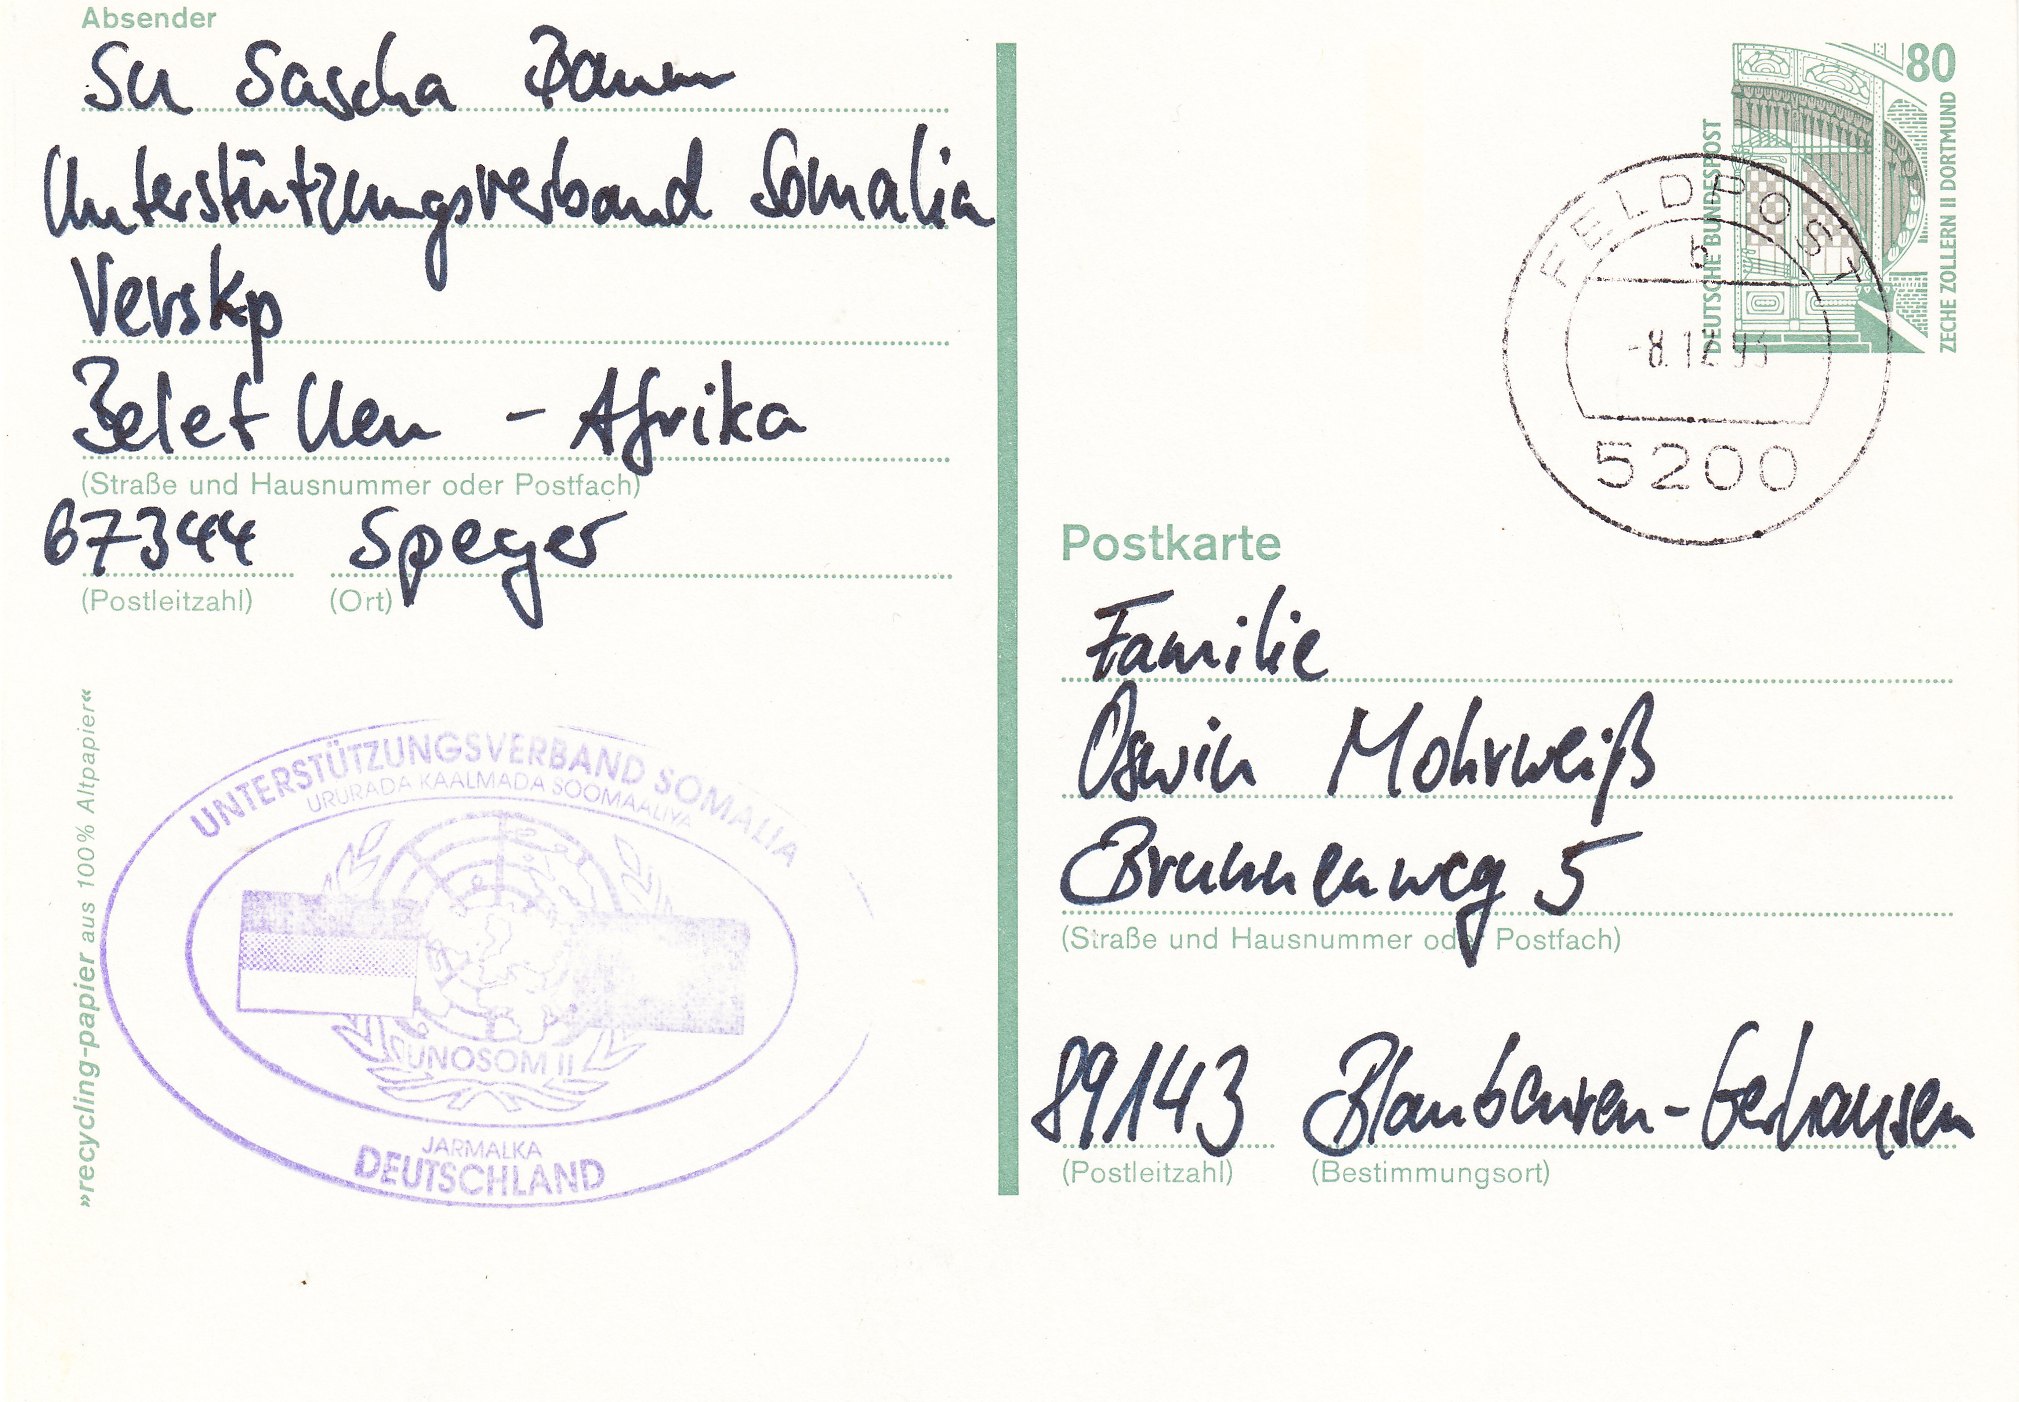 Absender
SU Sascha Baum
Unterstützungsverband Somalia
Verskp
Belet Uen - Afrika
(Straße und Hausnummer oder Postfach)
67344 Speyer
(Postleitzahl) (Ort)
»recycling-papier aus 100% Altpapier«
UNTERSTÜTZUNGSVERBAND SOMALIA
URURADA KAALMADA SOOMAALIYA
UNOSOM II
JARMALKA
DEUTSCHLAND
80
DEUTSCHE BUNDESPOST
ZECHE ZOLLERN II DORTMUND
FELDPOST
b
-8.12.93
5200
Postkarte
Familie
Oswin Mohrweiß
Brunnenweg 5
(Straße und Hausnummer oder Postfach)
89143 Blaubeuren-Gerhausen
(Postleitzahl) (Bestimmungsort)